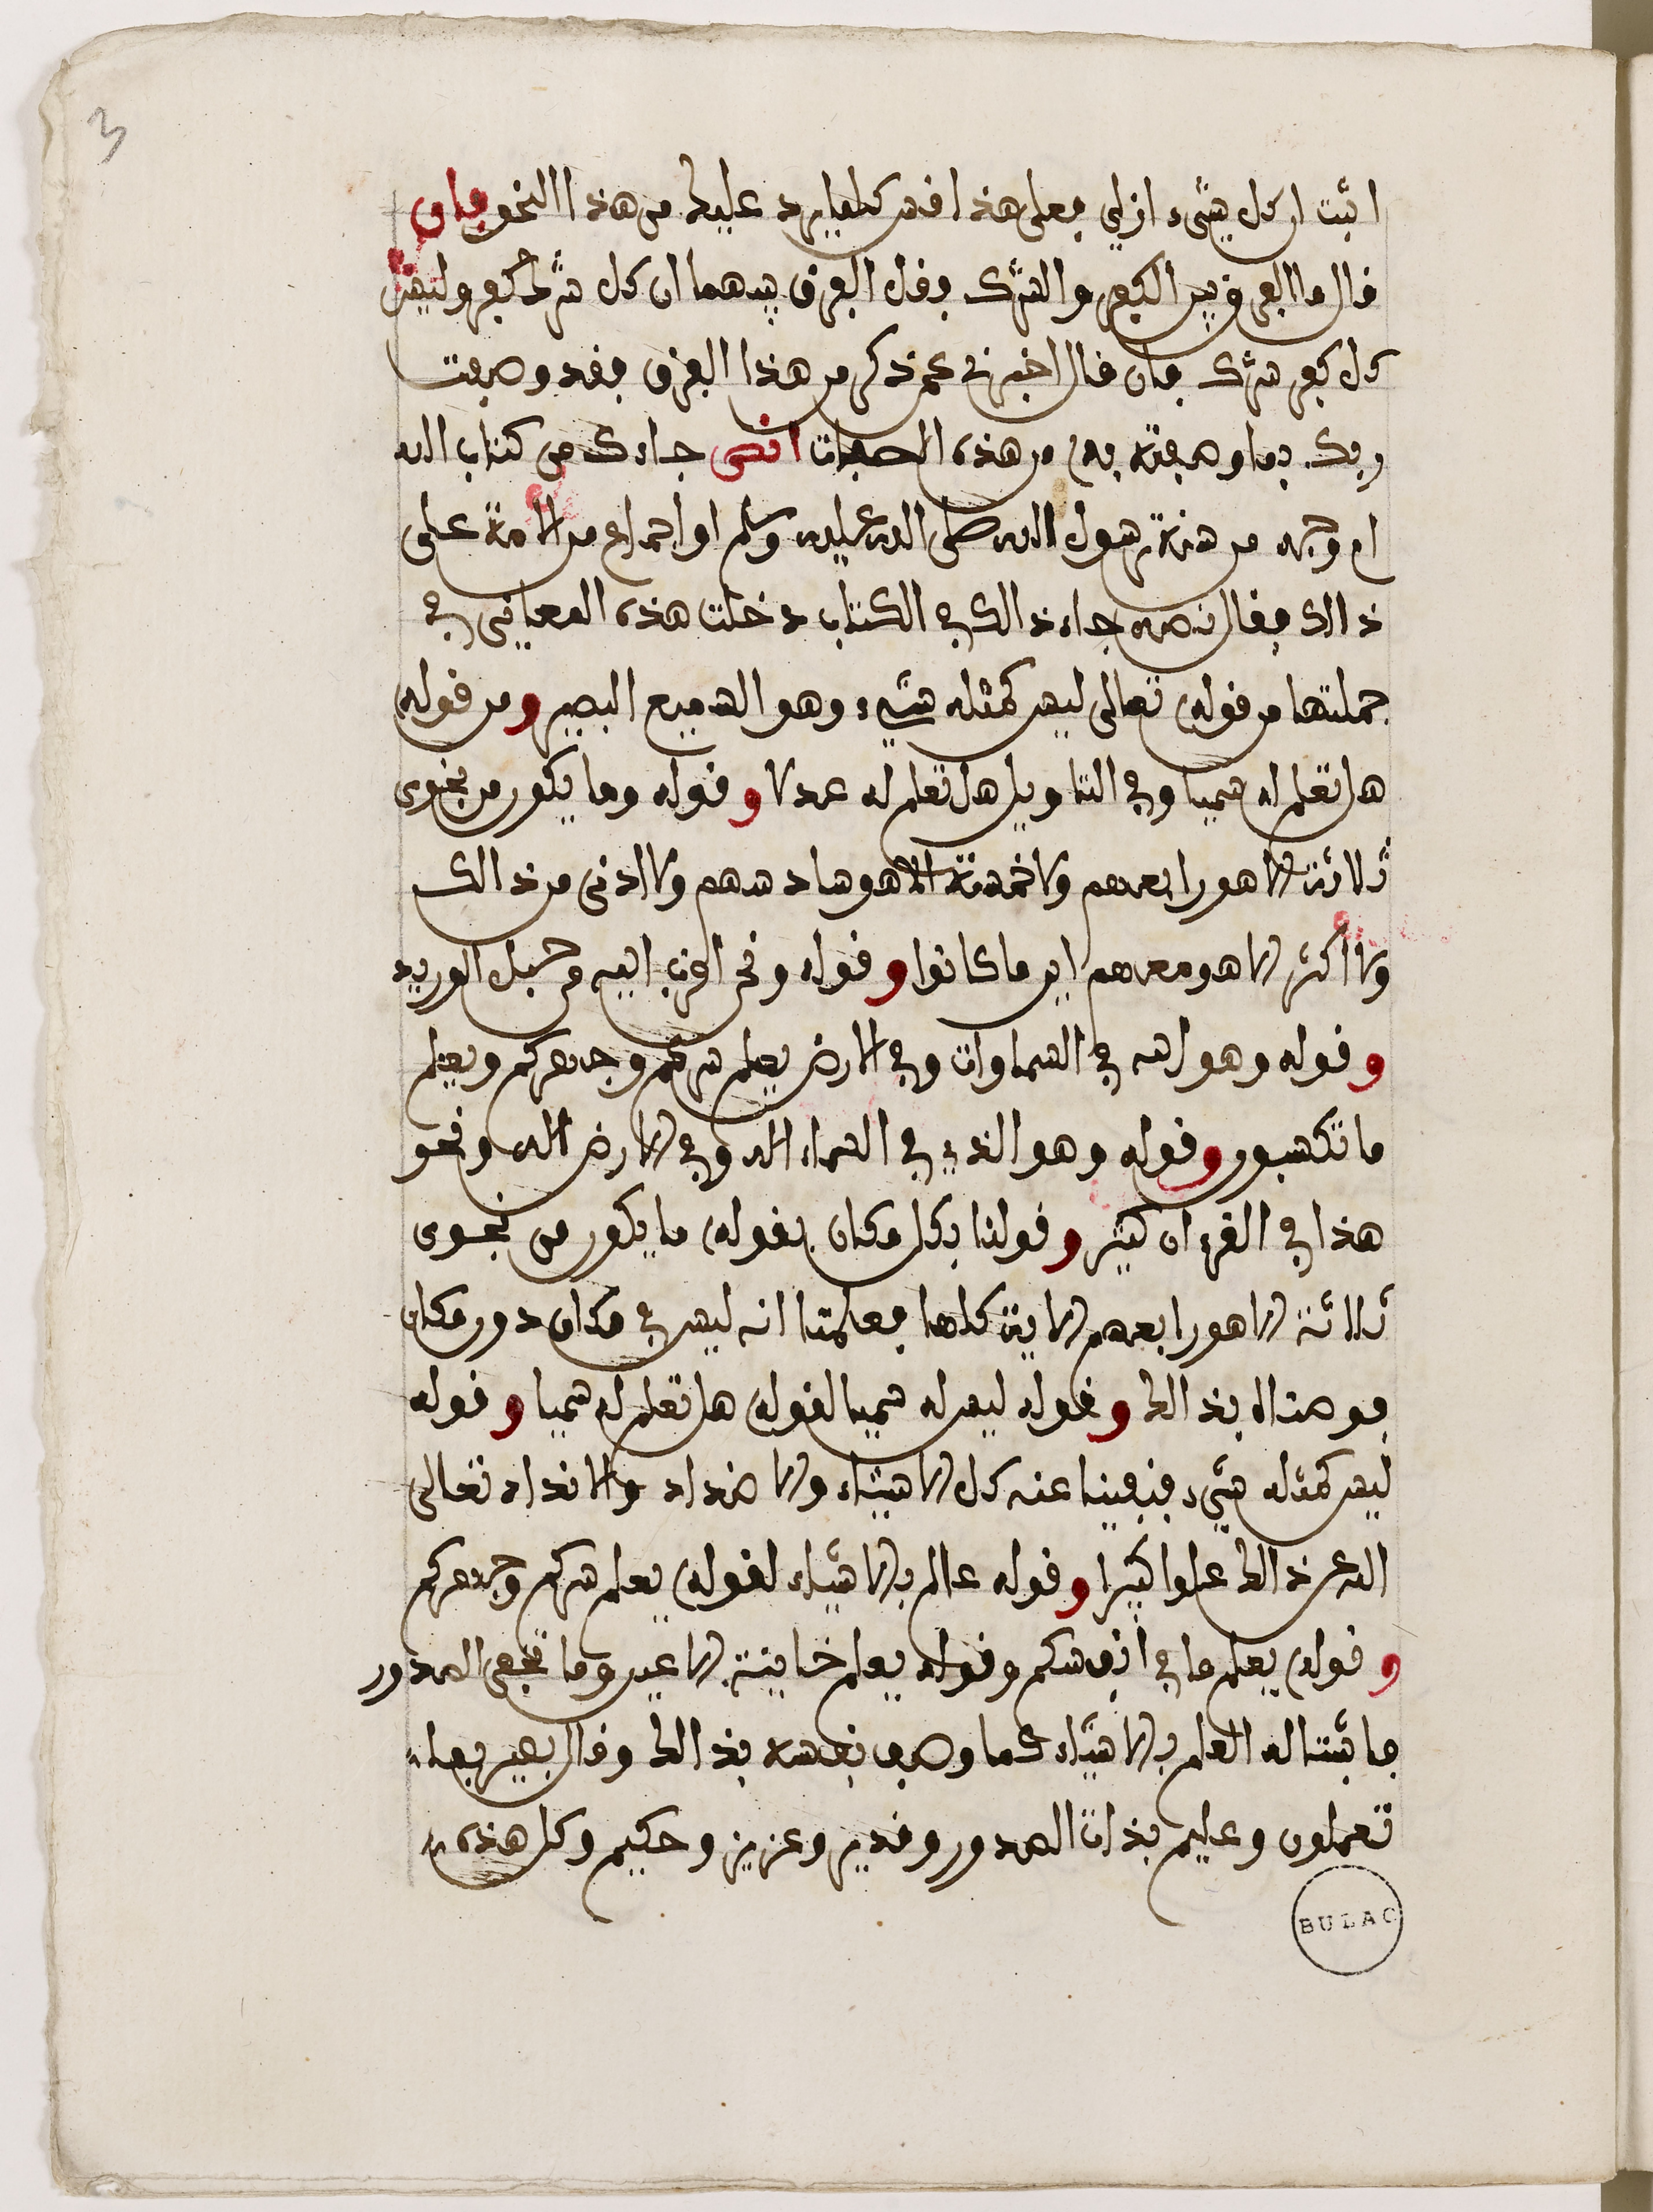 3
اثبت ان كل شيء ازلي فعلى هذا فقس كلما يرد عليك من هذا النحو فان
قال ما الفرق بين الكفر والشرك فقل الفرق بينهما ان كل شرك كفر وليس
كل كفر شرك فان قال اخبرني عمن ذكر من هذا الفرق فقد وصفت
ربك بما وصفته به من هذه الصفات انصى جاءك من كتاب الله
ام وجه من سنة رسول الله صلى الله عليه وسلم او اجماع من الامة على
ذالك فقال نصه جاء ذالك في الكتاب دخلت هذه المعاني في
جملتها من قوله تعالى ليس كمثله شيء وهو السميع البصير ومن قوله
هل تعلم له سميا وفي التاويل هل تعلم له عدلا وقوله وما يكون من نجوى
ثلاثة الا هو رابعهم ولا خمسة الا هو سادسهم ولا ادنى من ذالك
ولا اكثر الا هو معهم اين ما كانوا وقوله ونحن اقرب اليه من حبل الوريد
وقوله وهو الله في السماوات وفي الارض يعلم سركم وجهركم ويعلم
ما تكسبون وقوله وهو الذي في السماء اله وفي الارض اله ونحو
هذا في القرءان كثير وقولنا بكل مكان بقوله ما يكون من نجوى
ثلاثة الا هو رابعهم الاية كلها فعلمنا انه ليس في مكان دون مكان
فوصفناه بذالك وقوله ليس له سميا لقوله هل تعلم له سميا وقوله
ليس كمثله شيء فنفينا عنه كل الاشياء والاضداد والانداد تعالى
الله عن ذالك علوا كبيرا وقوله عالم بالاشياء لقوله يعلم سركم وجهركم
وقوله يعلم ما في انفسكم وقوله يعلم خاينة الاعين وما تخفي الصدور
فاثبتنا له العلم بالاشياء كما وصف نفسه بذالك وقال بصير بما
تعملون وعليم بذات الصدور وقدير وعزيز وحكيم وكل هذه
BULAC